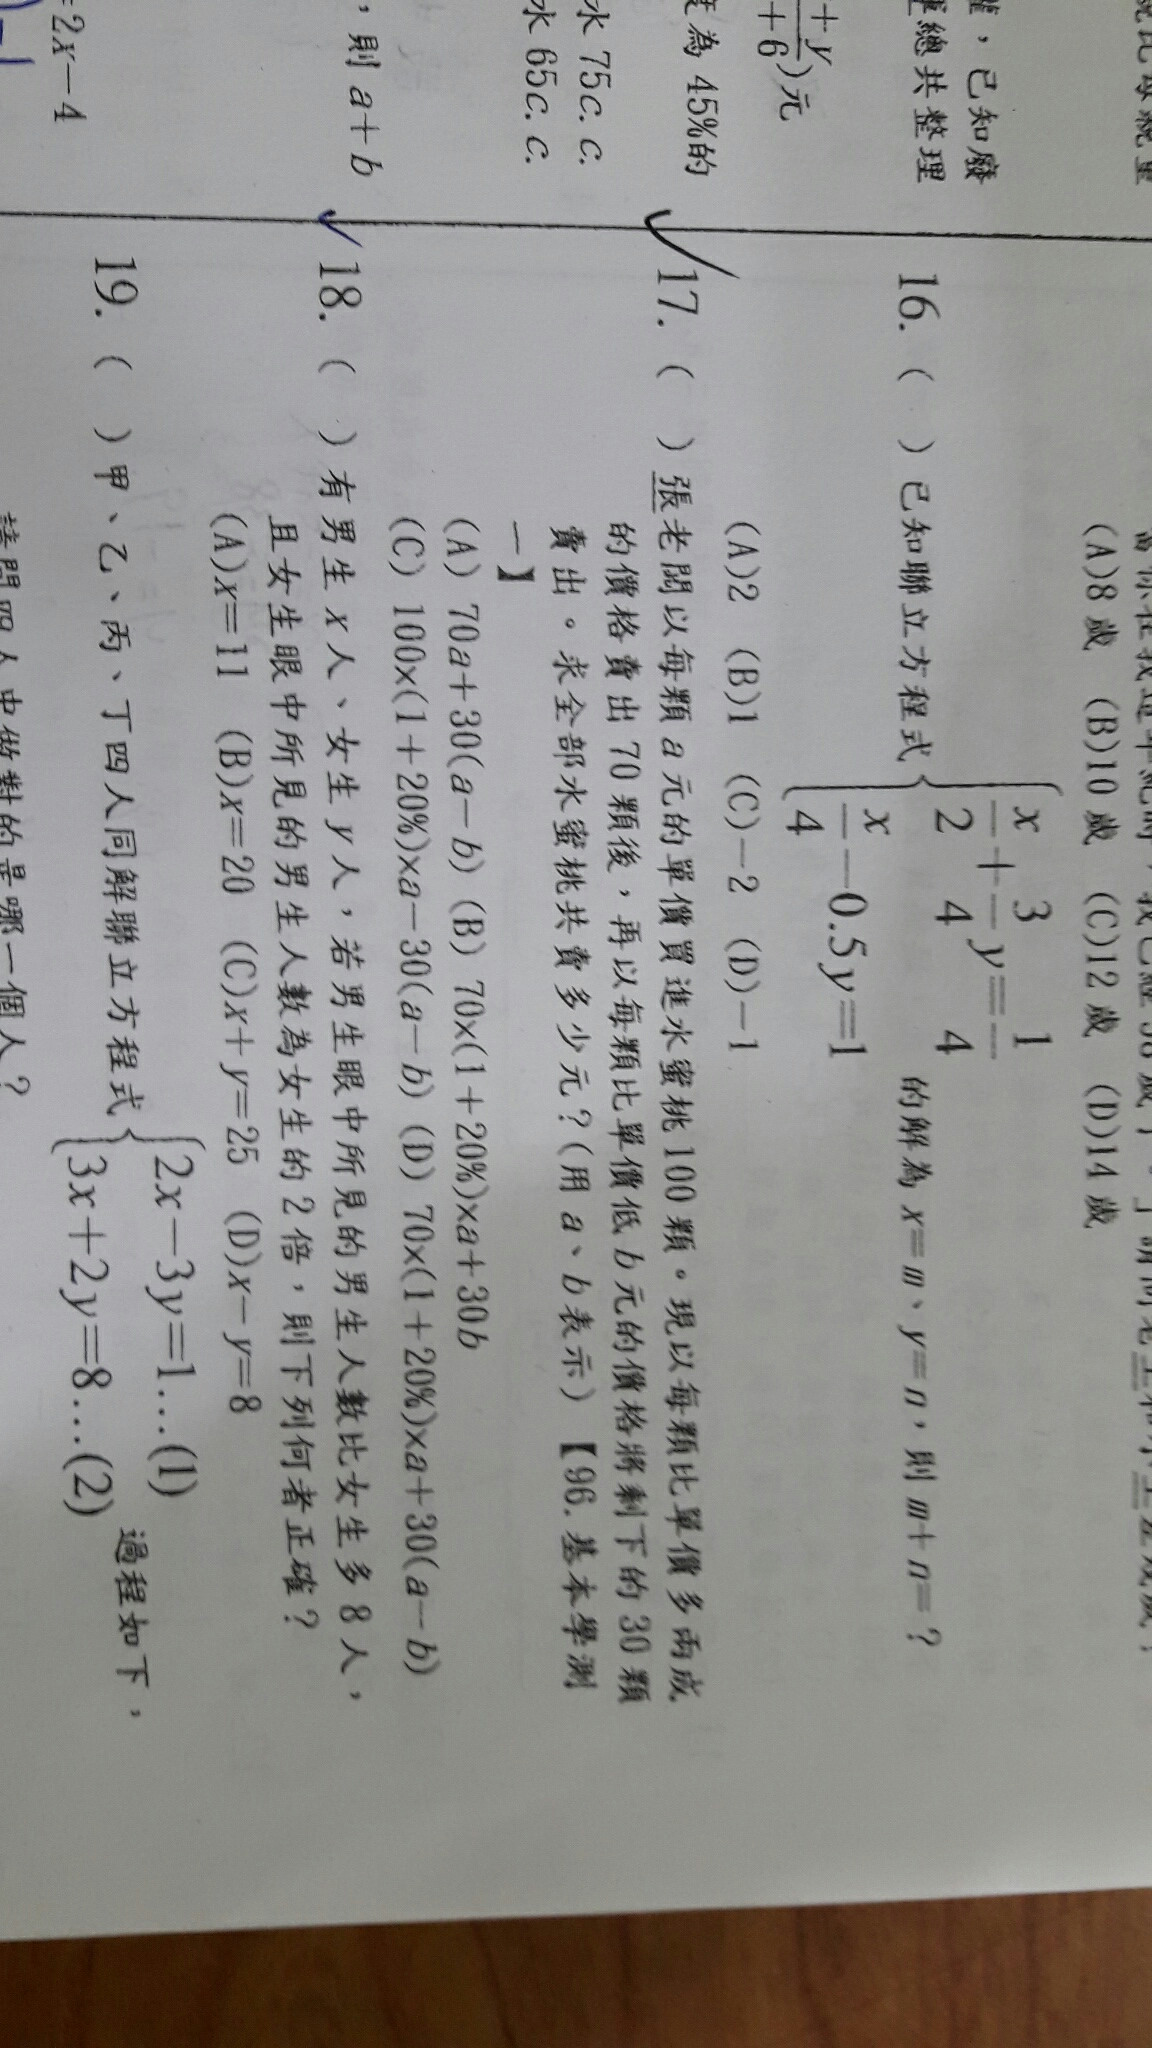 權，已知廢
軍總共整理
+y
+6)元
度為 45%的
水 75c.c.
水 65c.c.
，則 a+b
=2x-4
(A)8 歲 (B)10 歲 (C)12 歲 (D)14 歲
16. ( ) 已知聯立方程式 { x/2+3/4y=1/4
x/4-0.5y=1 的解為 x=m、y=n，則 m+n=？
(A)2 (B)1 (C)-2 (D)-1
17. ( ) 張老闆以每顆 a 元的單價買進水蜜桃 100 顆。現以每顆比單價多兩成
的價格賣出 70 顆後，再以每顆比單價低 b 元的價格將剩下的 30 顆
賣出。求全部水蜜桃共賣多少元？(用 a、b 表示) 【96.基本學測
一】
(A) 70a+30(a-b) (B) 70x(1+20%)xa+30b
(C) 100x(1+20%)xa-30(a-b) (D) 70x(1+20%)xa+30(a-b)
18. ( ) 有男生 x 人、女生 y 人，若男生眼中所見的男生人數比女生多 8 人，
且女生眼中所見的男生人數為女生的 2 倍，則下列何者正確？
(A)x=11 (B)x=20 (C)x+y=25 (D)x-y=8
19. ( ) 甲、乙、丙、丁四人同解聯立方程式 { 2x-3y=1…(1)
3x+2y=8…(2) 過程如下，
請問四人中做對的是哪一個人？